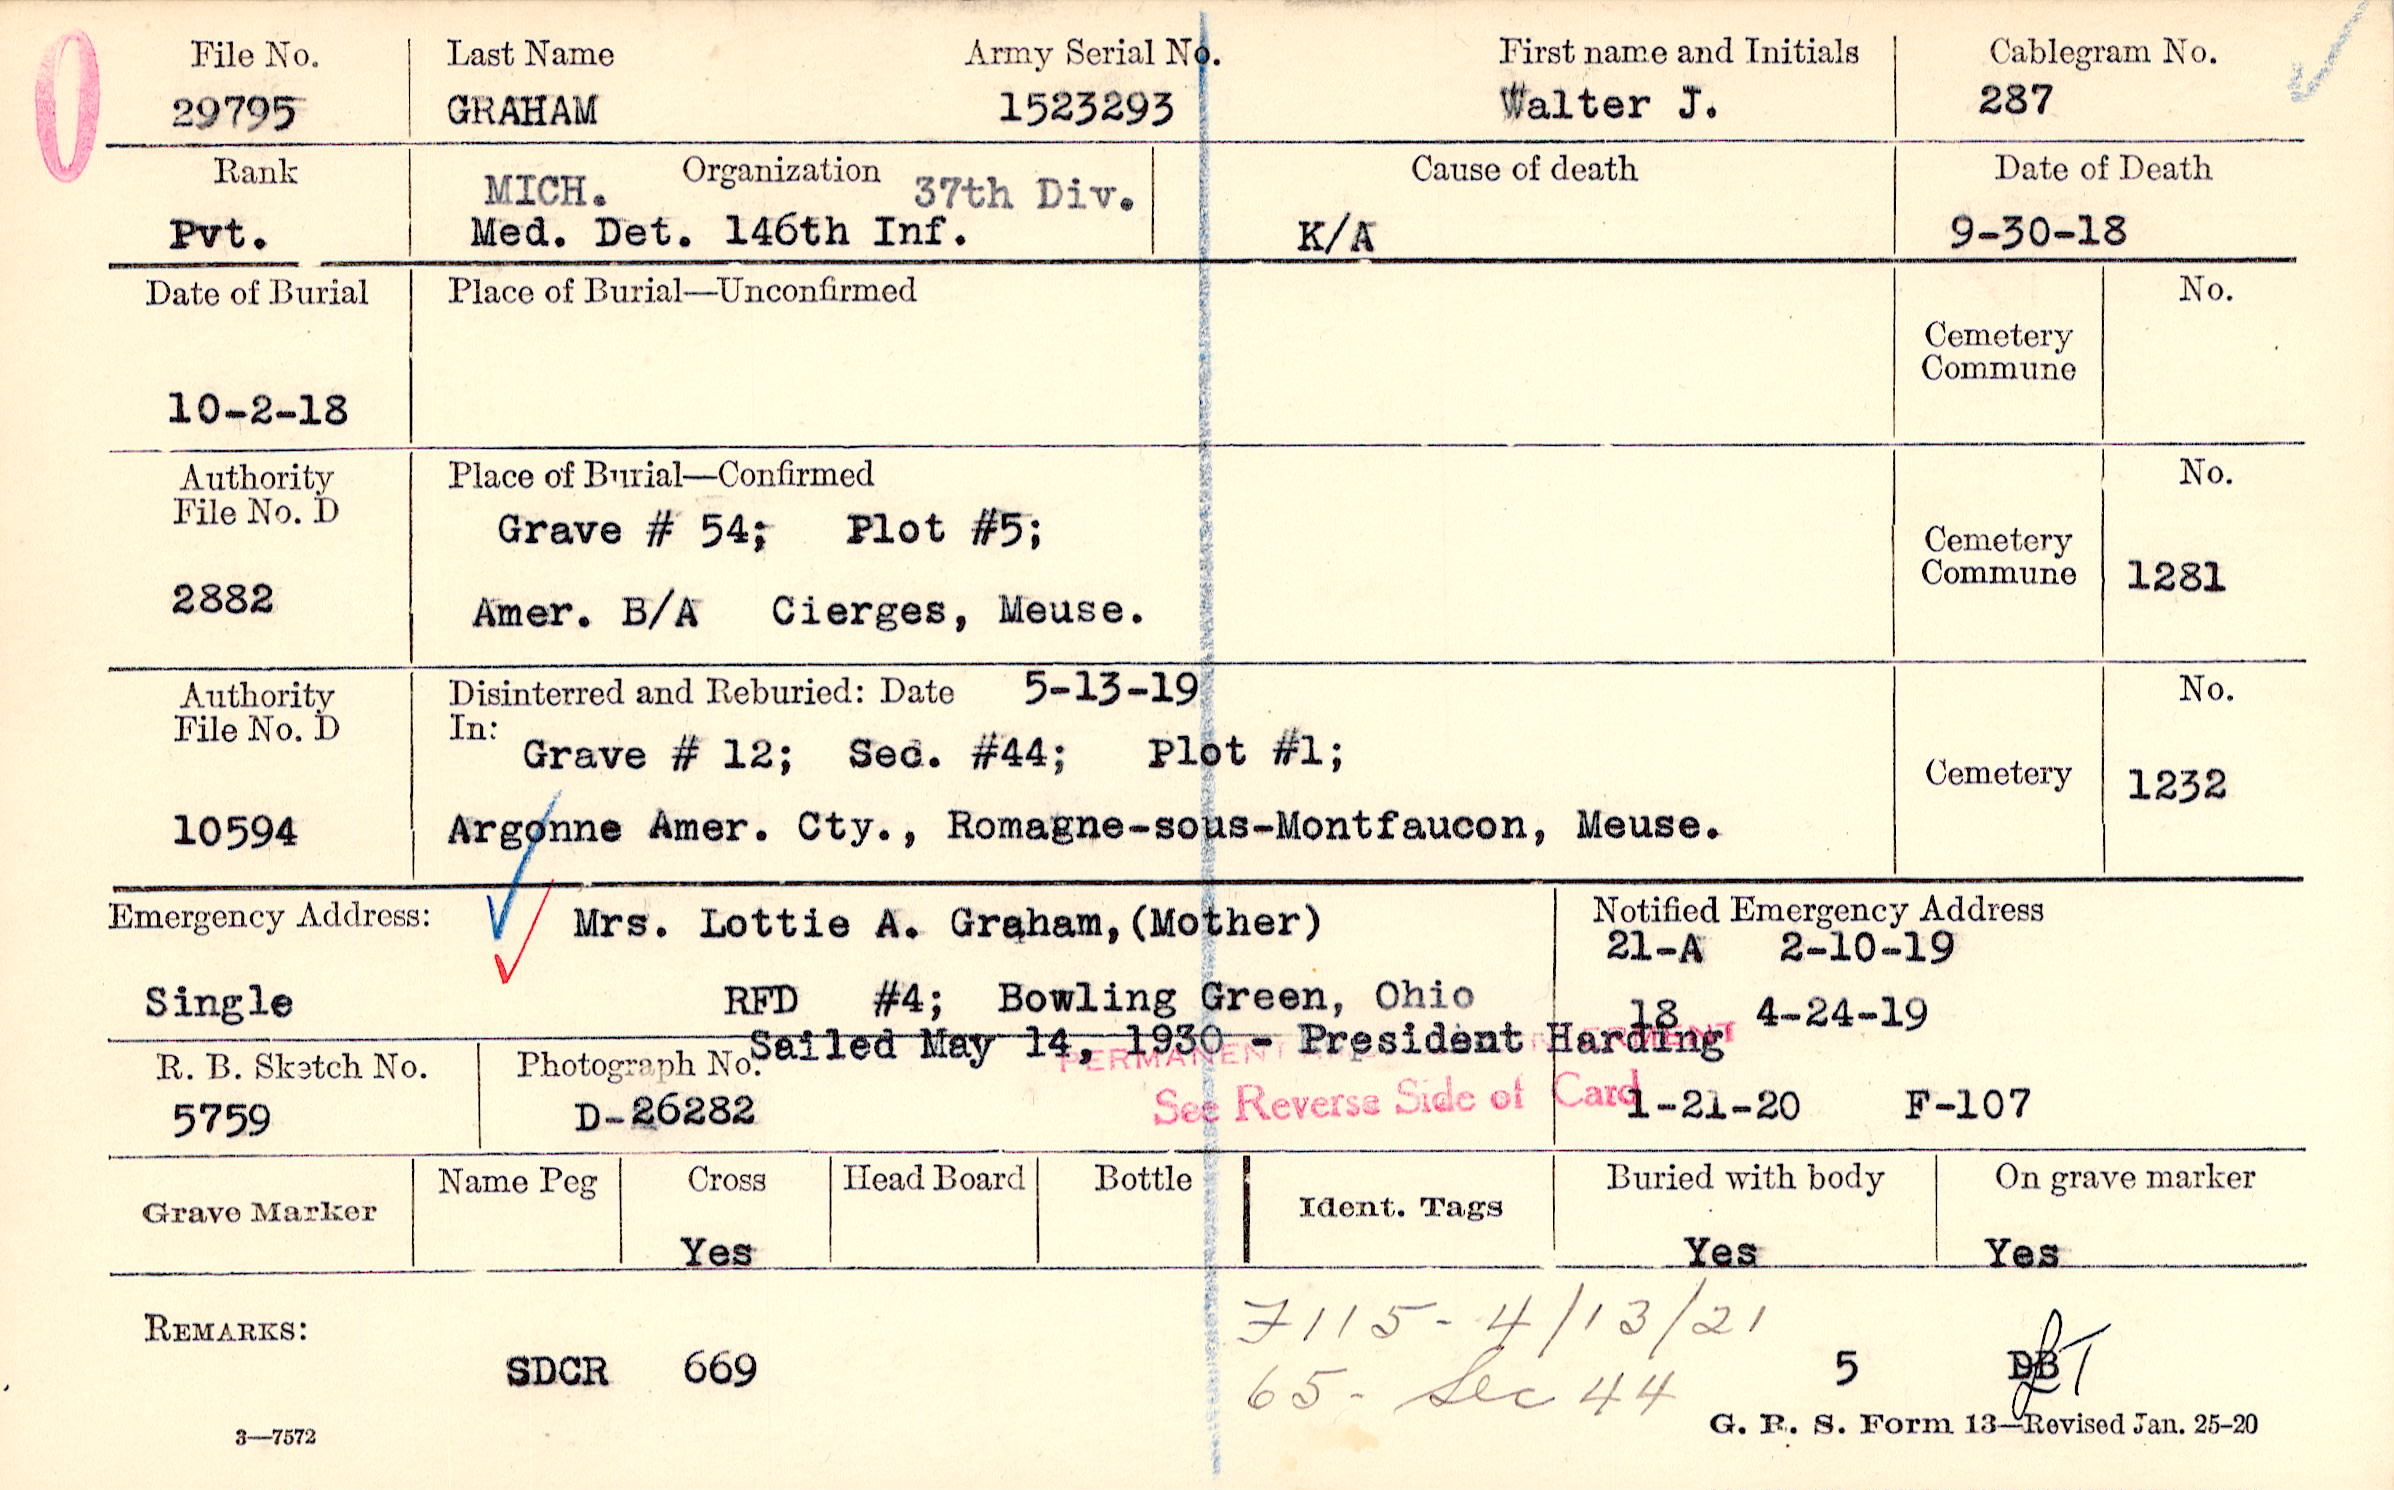 File No. Last Name Army Serial No. First name and Initials Cablegram No.
29795 GRAHAM 1523293 Walter J. 287
Rank Organization Cause of death Date of Death
MICH. 37th Div.
Pvt. Med. Det. 146th Inf. K/A 9-30-18
Date of Burial Place of Burial—Unconfirmed No.
Cemetery
Commune
10-2-18
Authority Place of Burial—Confirmed No.
File No. D
Grave # 54; Plot #5; Cemetery
2882 Commune 1281
Amer. B/A Cierges, Meuse.
Authority Disinterred and Reburied: Date 5-13-19 No.
File No. D In:
Grave # 12; Sec. #44; Plot #1; Cemetery 1232
10594 Argonne Amer. Cty., Romagne-sous-Montfaucon, Meuse.
Emergency Address: Mrs. Lottie A. Graham,(Mother) Notified Emergency Address
21-A 2-10-19
Single RFD #4; Bowling Green, Ohio 18 4-24-19
Sailed May 14, 1930 - President Harding
PERMANENT
R. B. Sketch No. Photograph No.
See Reverse Side of Card
5759 D-26282 1-21-20 F-107
Grave Marker Name Peg Cross Head Board Bottle Ident. Tags Buried with body On grave marker
Yes Yes Yes
REMARKS: 7115- 4/13/21
SDCR 669 65- Sec 44 5 DB
3—7572 G. R. S. Form 13—Revised Jan. 25-20